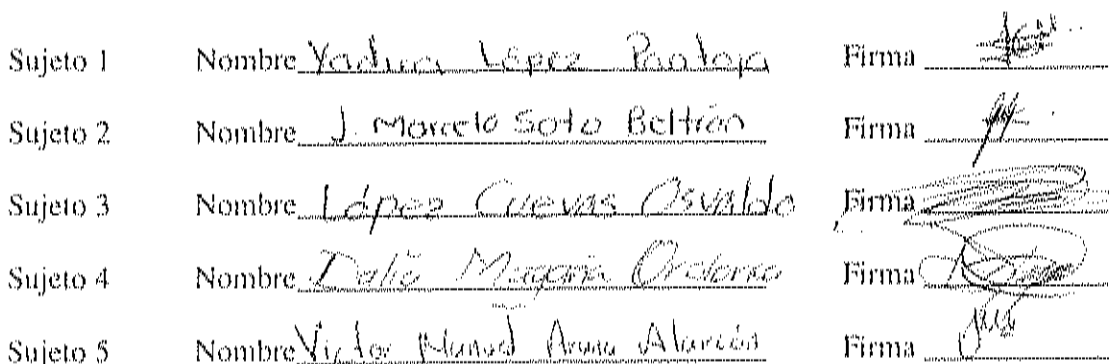 Sujeto 1 Nombre Yadira López Pantoja Firma
Sujeto 2 Nombre J. Marcelo Soto Beltrán Firma
Sujeto 3 Nombre López Cuevas Osvaldo Firma
Sujeto 4 Nombre Dalia Magaña Firma
Sujeto 5 Nombre Victor Manuel Alarcón Firma